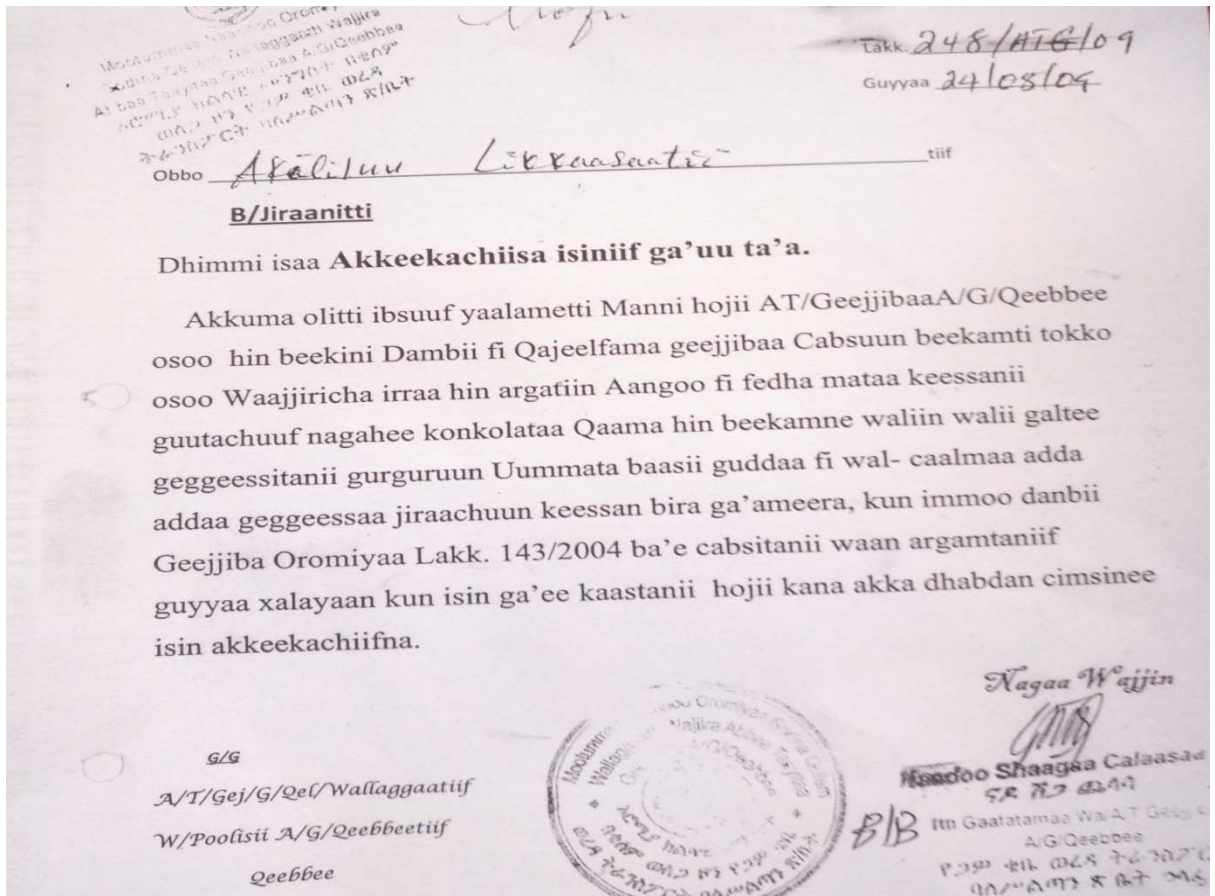 Lakk. 248/ATG/09
Guyyaa 24/08/09
Obbo Akaliluu tiif
B/Jiraanitti
Dhimmi isaa Akkeekachiisa isiniif ga’uu ta’a.
Akkuma olitti ibsuuf yaalametti Manni hojii AT/GeejjibaaA/G/Qeebbee
osoo hin beekini Dambii fi Qajeelfama geejjibaa Cabsuun beekamti tokko
osoo Waajjiricha irraa hin argatiin Aangoo fi fedha mataa keessanii
guutachuuf nagahee konkolataa Qaama hin beekamne waliin walii galtee
geggeessitanii gurguruun Uummata baasii guddaa fi wal- caalmaa adda
addaa geggeessaa jiraachuun keessan bira ga’ameera, kun immoo danbii
Geejjiba Oromiyaa Lakk. 143/2004 ba’e cabsitanii waan argamtaniif
guyyaa xalayaan kun isin ga’ee kaastanii hojii kana akka dhabdan cimsinee
isin akkeekachiifna.
Nagaa Wajjin
G/G
A/T/Gej/G/Qel/Wallaggaatiif
W/Poolisii A/G/Qeebbeetiif
Qeebbee
Shaagaa Calaasaa
B/B Itn Gaafatamaa
A/G/Qeebbee